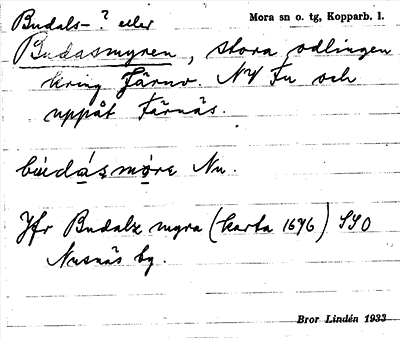 Budals- ? eller
Mora sn o. tg, Kopparb. l.
Budasmyren, stora odlingen
kring Färnv. NV Fu och
uppåt Färnäs.
búdásmọre Nu.
Jfr Budalz myra (karta 1696) SSO
Nusnäs by.
Bror Lindén 1933